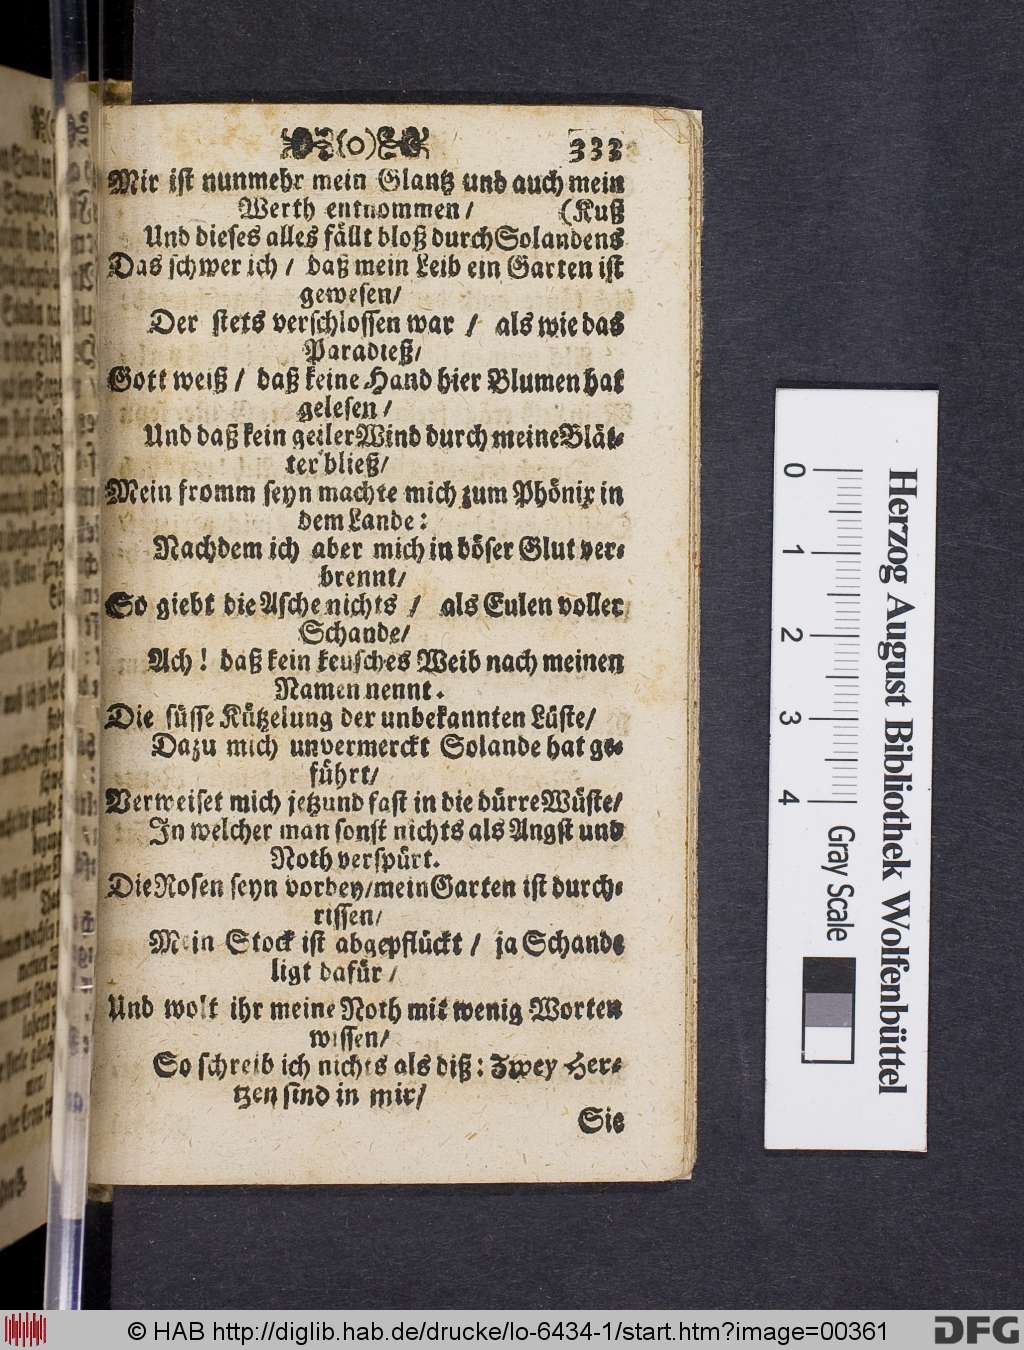 (o) 333
Mir ist nunmehr mein Glantz und auch mein
Werth entnommen/ (Kuß
Und dieses alles fällt bloß durch Solandens
Das schwer ich / daß mein Leib ein Garten ist
gewesen/
Der stets verschlossen war / als wie das
Paradieß/
Gott weiß / daß keine Hand hier Blumen hat
gelesen /
Und daß kein geiler Wind durch meine Blät-
ter bließ/
Mein fromm seyn machte mich zum Phönix in
dem Lande:
Nachdem ich aber mich in böser Glut ver-
brennt/
So giebt die Asche nichts / als Eulen voller
Schande/
Ach! daß kein keusches Weib nach meinen
Namen nennt.
Die süsse Kützelung der unbekannten Lüste/
Dazu mich unvermerckt Solande hat ge-
führt/
Verweiset mich jetzund fast in die dürre Wüste/
In welcher man sonst nichts als Angst und
Noth verspürt.
Die Rosen seyn vorbey/ mein Garten ist durch-
rissen/
Mein Stock ist abgepflückt / ja Schande
ligt dafür /
Und wolt ihr meine Noth mit wenig Worten
wissen/
So schreib ich nichts als diß: Zwey Her-
tzen sind in mir/
Sie
0 1 2 3 4
Gray Scale
Herzog August Bibliothek Wolfenbüttel
© HAB http://diglib.hab.de/drucke/lo-6434-1/start.htm?image=00361
DFG